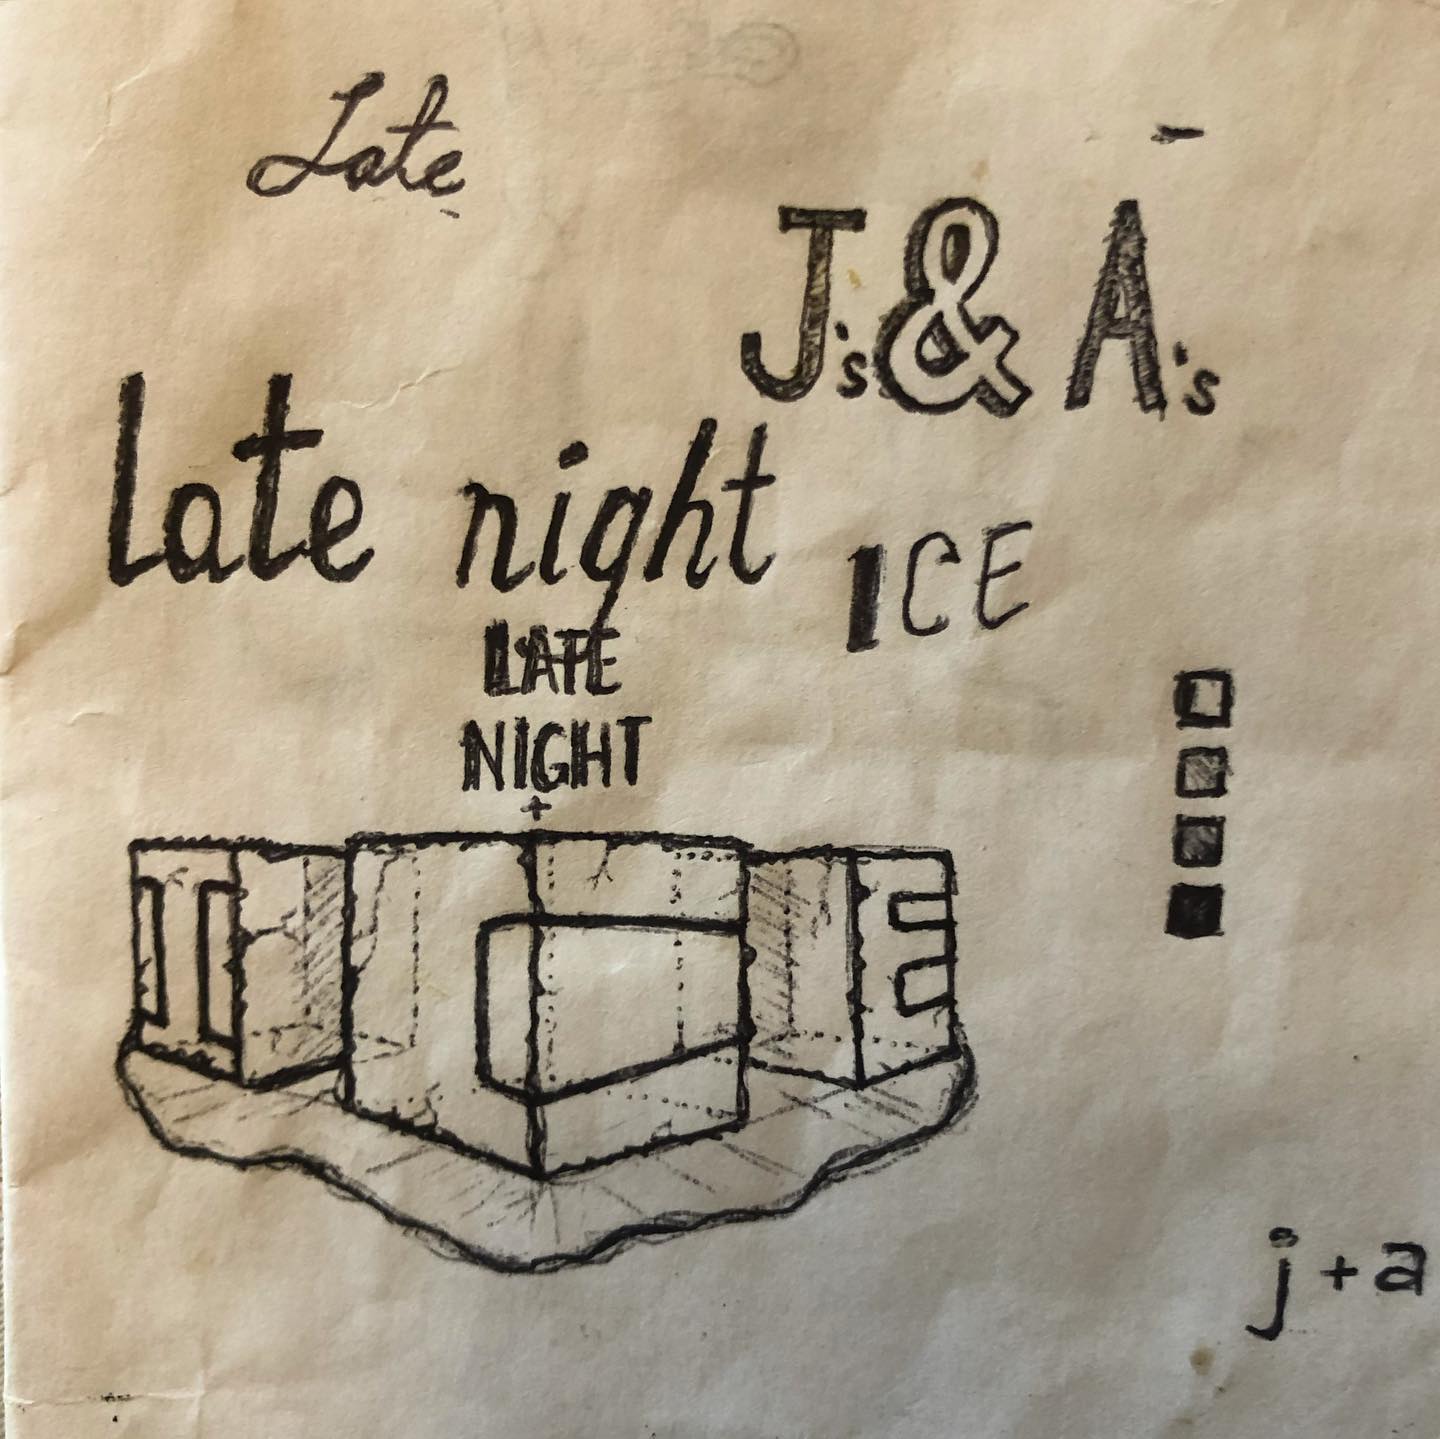 Late
J's & A's
late night
ICE
LATE
NIGHT
ICE
j + a